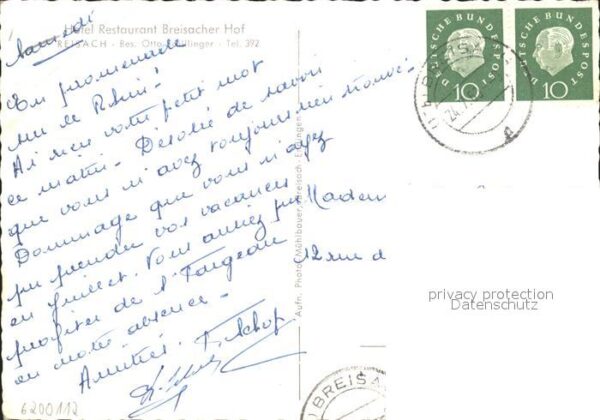 Hotel Restaurant Breisacher Hof
BREISACH - Bes. Otto - Tel. 392
Samedi
En promenade
sur le Rhin!
Ai bien votre petit mot
ce matin. Désolée de savoir
que vous n'avez toujours rien trouvé
Dommage que vous n'ayez
pu prendre vos vacances
en Juillet. Vous auriez pu
profiter de l'
en notre absence.
Amitiés.
Madem
12 rue d
Aufn. Photo Mühlbauer, Breisach
DEUTSCHE BUNDESPOST
10
DEUTSCHE BUNDESPOST
10
BREISA
privacy protection
Datenschutz
6200112